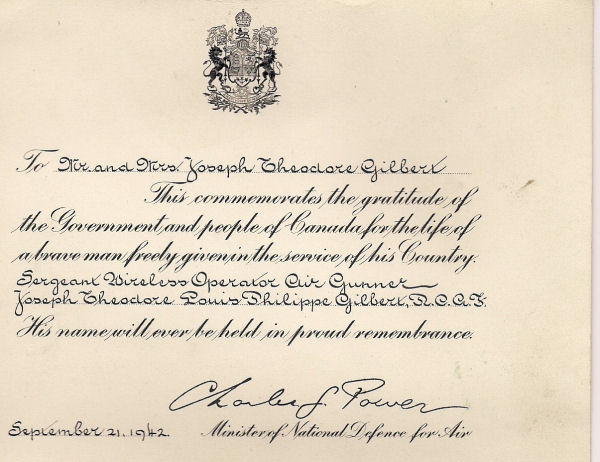 To Mr. and Mrs. Joseph Theodore Gilbert
This commemorates the gratitude of
the Government and people of Canada for the life of
a brave man freely given in the service of his Country.
Sergeant Wireless Operator Air Gunner
Joseph Theodore Louis Philippe Gilbert, R.C.A.F.
His name will ever be held in proud remembrance.
Charles G. Power
September 21, 1942.
Minister of National Defence for Air